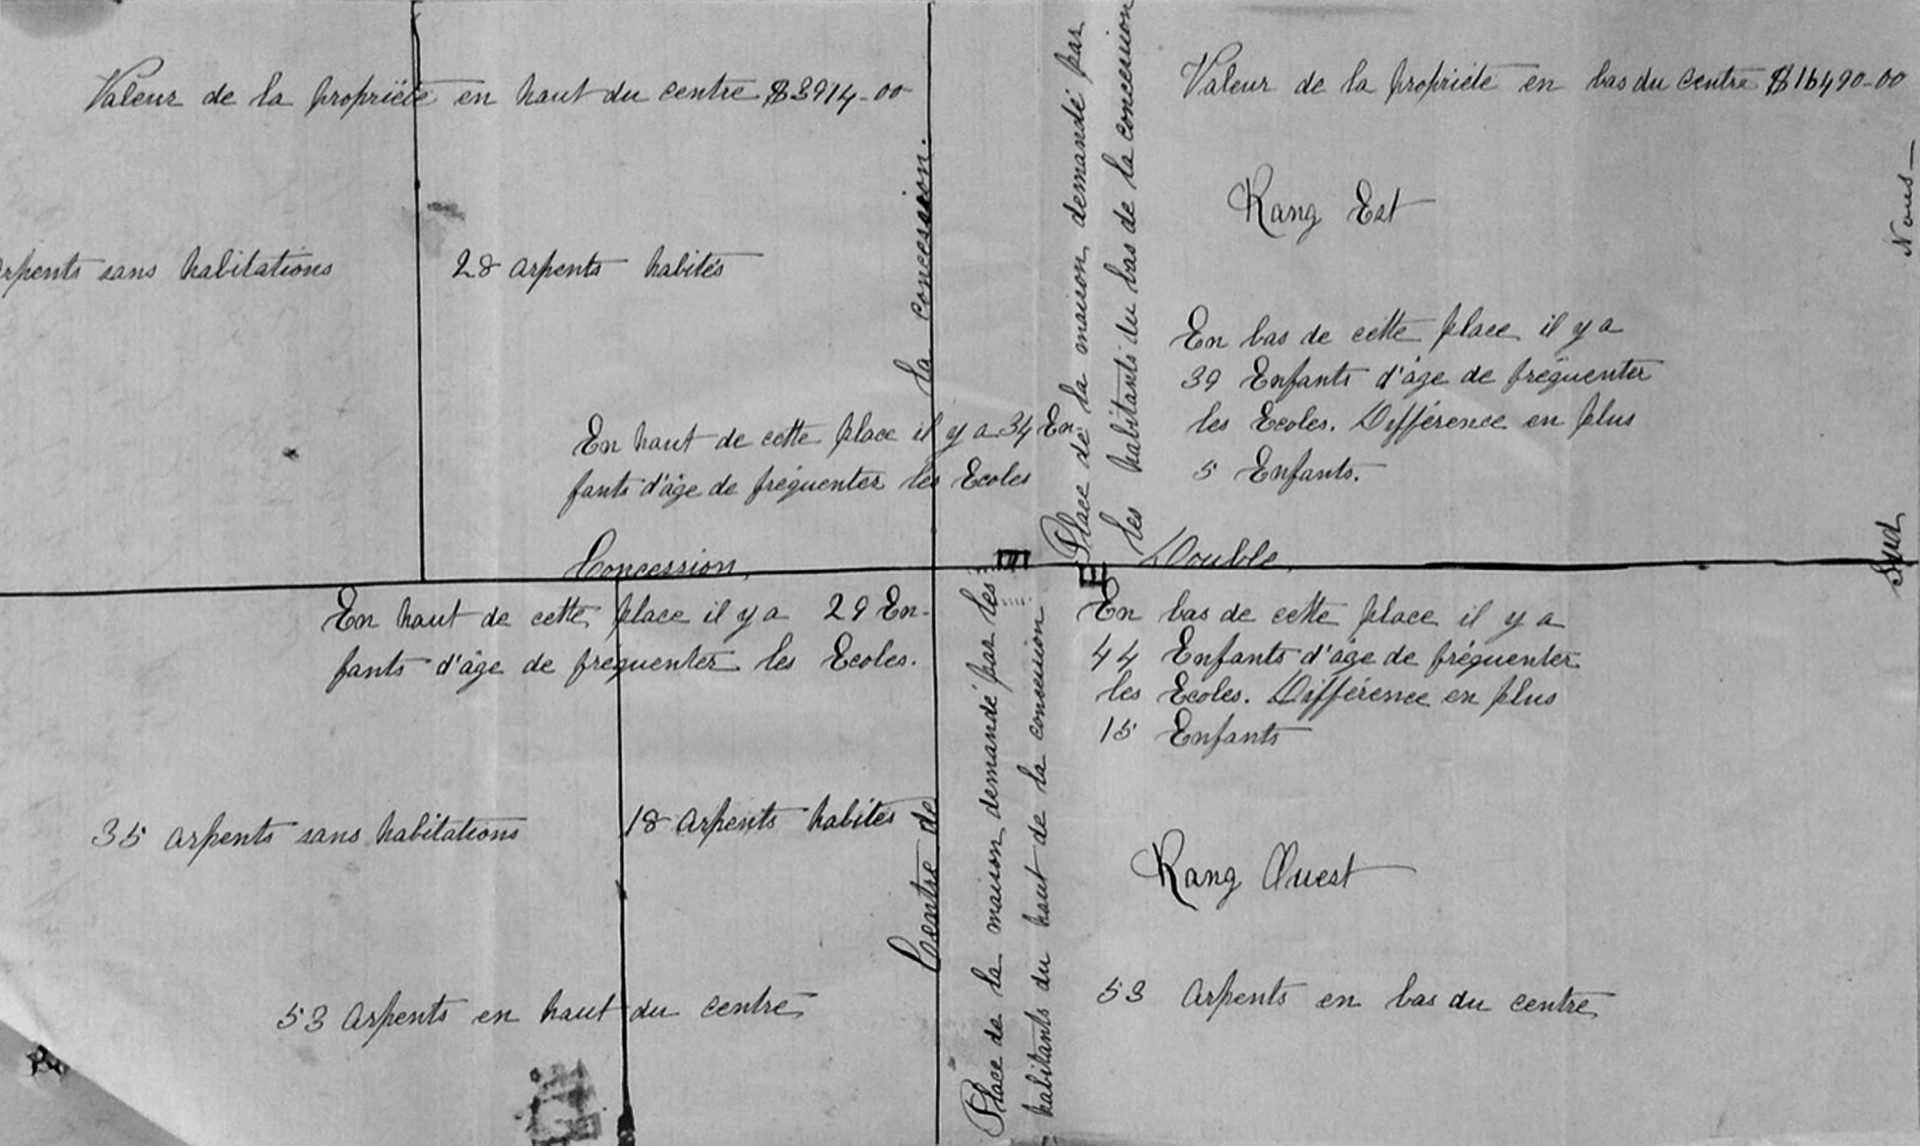 Valeur de la propriéte en haut du centre $3914-00
Valeur de la propriete en bas du centre $16490-00
Rang Est
arpents sans habitations
28 arpents habités
En bas de cette place il y a
39 Enfants d'âge de fréquenter
les Ecoles. Différence en plus
5 Enfants.
En haut de cette place il y a 34 En
fants d'âge de fréquenter les Ecoles
Place de la maison demandé par
les habitants du bas de la concession
Nous—
Sud
Concession
Double
En haut de cette place il y a 29 En-
fants d'âge de frequenter les Ecoles.
En bas de cette place il y a
44 Enfants d'âge de fréquenter
les Ecoles. Différence en plus
15 Enfants
35 arpents sans habitations
18 arpents habités
Centre de la concession.
Place de la maison demandé par les
habitants du haut de la concession
Rang Ouest
53 Arpents en haut du centre
53 Arpents en bas du centre